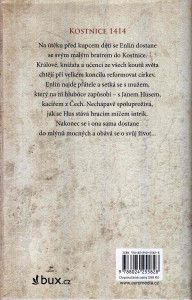 KOSTNICE 1414
Na útěku před kupcem dětí se Enlin dostane
se svým malým bratrem do Kostnice.
Králové, knížata a učenci ze všech koutů světa
chtějí při velkém koncilu reformovat církev.
Enlin najde přátele a setká se s mužem,
který na ni hluboce zapůsobí – s Janem Husem,
kacířem z Čech. Nechápavě spoluprožívá,
jak se Hus stává hracím míčem intrik.
Nakonec se i ona sama dostane
do mlýna mocných a obává se o svůj život...
bux.cz
www.euromedia.cz